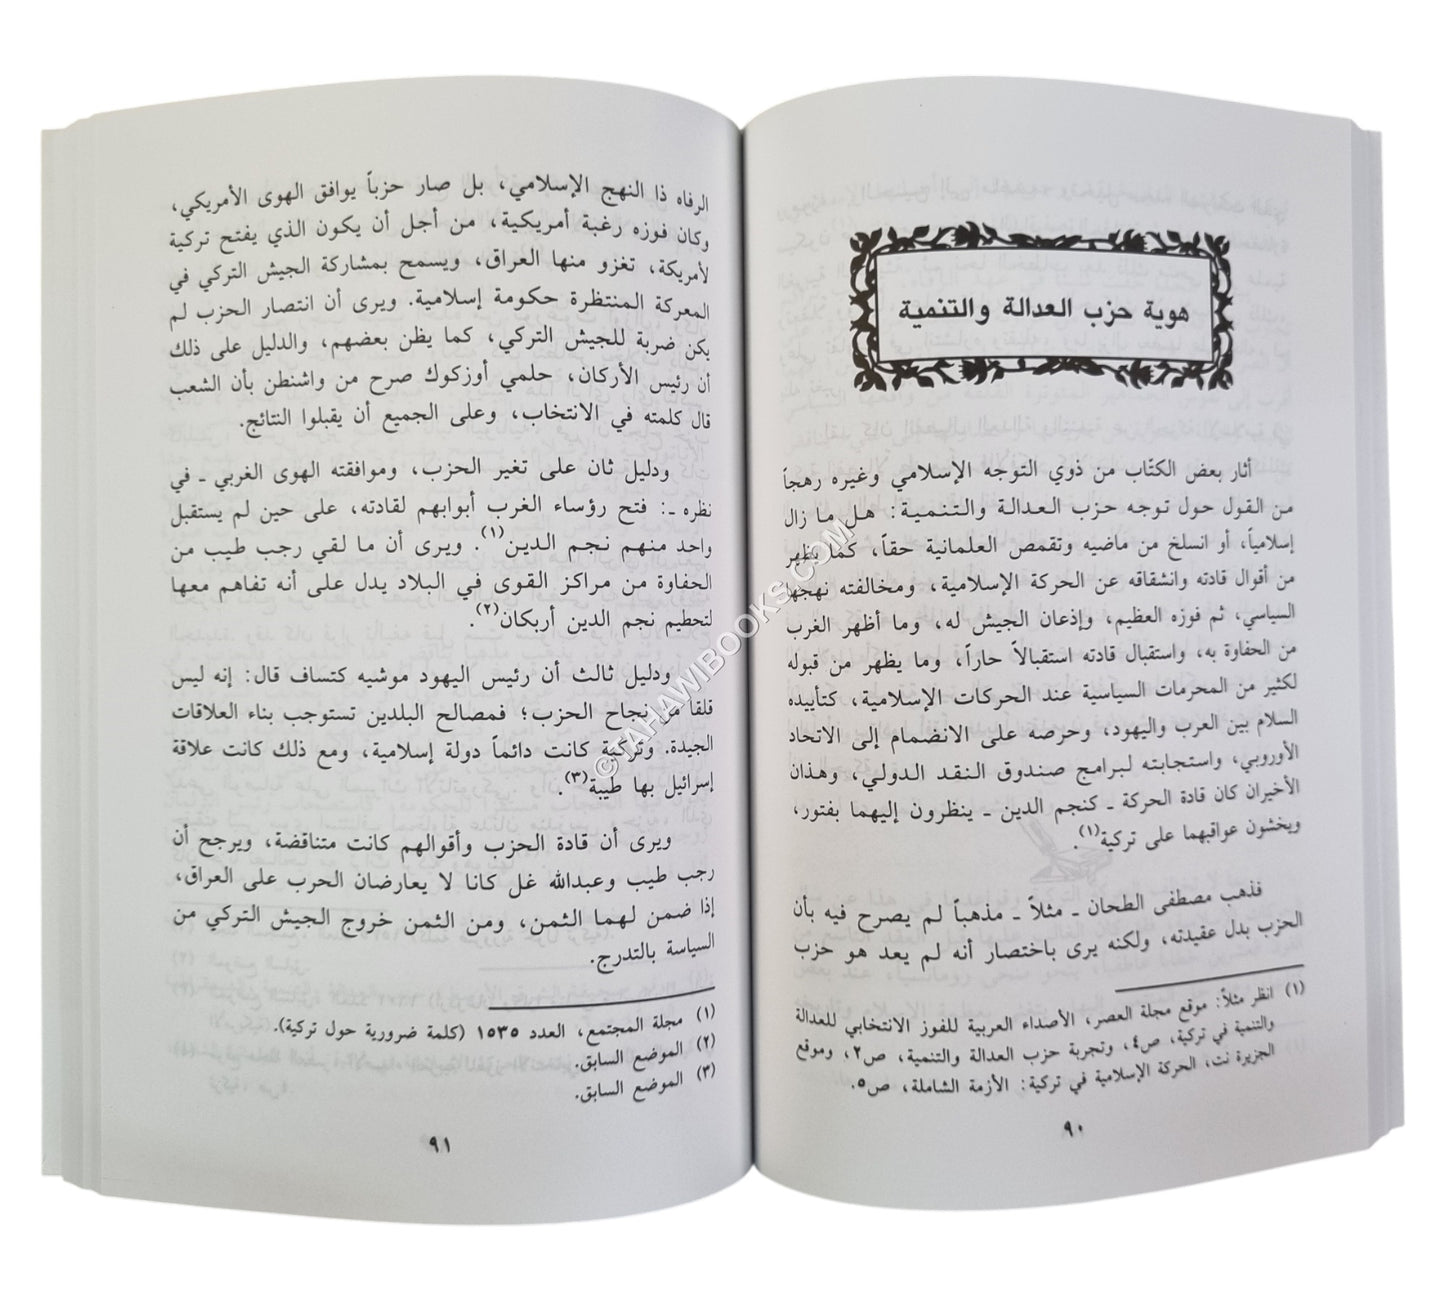 هوية حزب العدالة والتنمية
أثار بعض الكتّاب من ذوي التوجه الإسلامي وغيره رهجاً
من القول حول توجه حزب العدالة والتنمية: هل ما زال
إسلامياً، أو انسلخ من ماضيه وتقمص العلمانية حقاً، كما يظهر
من أقوال قادته وانشقاقه عن الحركة الإسلامية، ومخالفته نهجها
السياسي، ثم فوزه العظيم، وإذعان الجيش له، وما أظهر الغرب
من الحفاوة به، واستقبال قادته استقبالاً حاراً، وما يظهر من قبوله
لكثير من المحرمات السياسية عند الحركات الإسلامية، كتأييده
السلام بين العرب واليهود، وحرصه على الانضمام إلى الاتحاد
الأوروبي، واستجابته لبرامج صندوق النقد الدولي، وهذان
الأخيران كان قادة الحركة ـ كنجم الدين ـ ينظرون إليهما بفتور،
ويخشون عواقبهما على تركية(١).
فذهب مصطفى الطحان ـ مثلاً ـ مذهباً لم يصرح فيه بأن
الحزب بدل عقيدته، ولكنه يرى باختصار أنه لم يعد هو حزب
(١) انظر مثلاً: موقع مجلة العصر، الأصداء العربية للفوز الانتخابي للعدالة
والتنمية في تركية، ص٤، وتجربة حزب العدالة والتنمية، ص٢، وموقع
الجزيرة نت، الحركة الإسلامية في تركية: الأزمة الشاملة، ص٥.
٩٠
الرفاه ذا النهج الإسلامي، بل صار حزباً يوافق الهوى الأمريكي،
وكان فوزه رغبة أمريكية، من أجل أن يكون الذي يفتح تركية
لأمريكة، تغزو منها العراق، ويسمح بمشاركة الجيش التركي في
المعركة المنتظرة حكومة إسلامية. ويرى أن انتصار الحزب لم
يكن ضربة للجيش التركي، كما يظن بعضهم، والدليل على ذلك
أن رئيس الأركان، حلمي أوزكوك صرح من واشنطن بأن الشعب
قال كلمته في الانتخاب، وعلى الجميع أن يقبلوا النتائج.
ودليل ثان على تغير الحزب، وموافقته الهوى الغربي ـ في
نظره ـ: فتح رؤساء الغرب أبوابهم لقادته، على حين لم يستقبل
واحد منهم نجم الدين(١). ويرى أن ما لقي رجب طيب من
الحفاوة من مراكز القوى في البلاد يدل على أنه تفاهم معها
لتحطيم نجم الدين أربكان(٢).
ودليل ثالث أن رئيس اليهود موشيه كتساف قال: إنه ليس
قلقا من نجاح الحزب؛ فمصالح البلدين تستوجب بناء العلاقات
الجيدة. وتركية كانت دائماً دولة إسلامية، ومع ذلك كانت علاقة
إسرائيل بها طيبة(٣).
ويرى أن قادة الحزب وأقوالهم كانت متناقضة، ويرجح أن
رجب طيب وعبدالله غل كانا لا يعارضان الحرب على العراق،
إذا ضمن لهما الثمن، ومن الثمن خروج الجيش التركي من
السياسة بالتدرج.
(١) مجلة المجتمع، العدد ١٥٣٥ (كلمة ضرورية حول تركية).
(٢) الموضع السابق.
(٣) الموضع السابق.
٩١
©TAHAWIBOOKS.COM